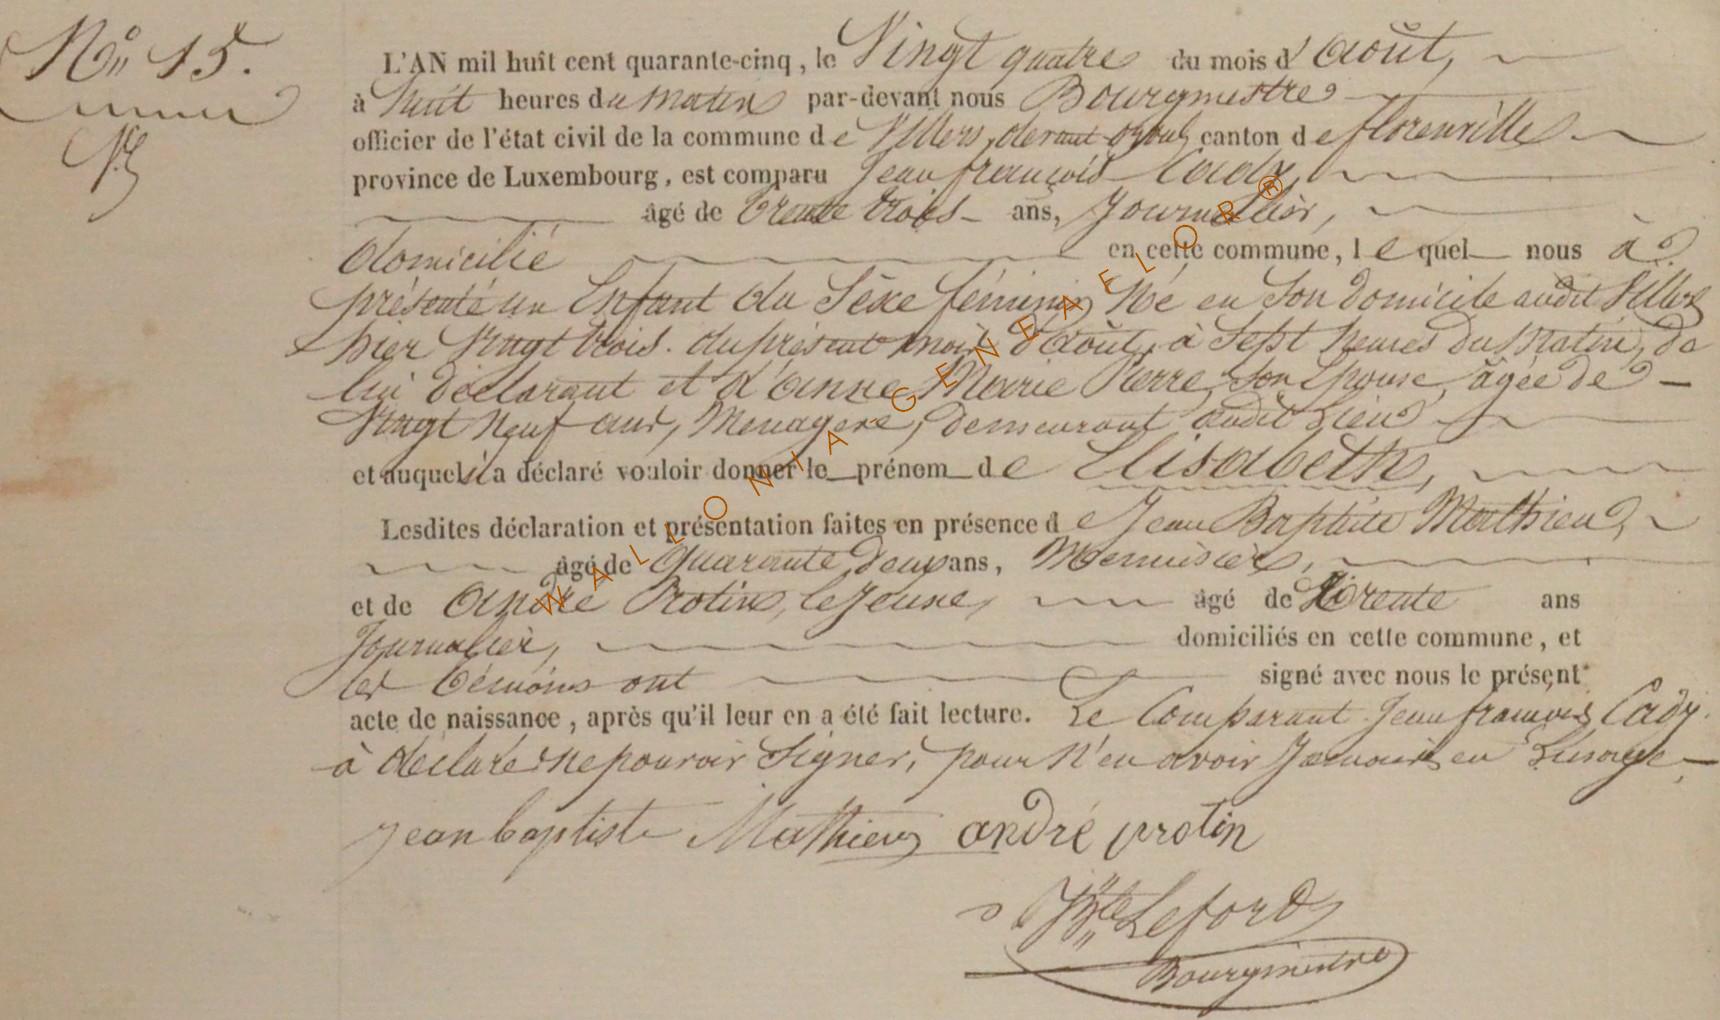 N° 15.
L'AN mil huit cent quarante-cinq, le Vingt quatre du mois d'Août,
à huit heures du matin par-devant nous Bourgmestre
officier de l'état civil de la commune de Villers, devant orval, canton de florenville
province de Luxembourg, est comparu Jean françois Cady,
âgé de trente trois ans, Journallier,
domicilié en cette commune, lequel nous à
présenté un Enfant du Sèxe féminin Né en Son domicile audit Villers
hier Vingt trois. du présent mois d'Août, à Sept heures du Matin, de
lui déclarant et d'anne Marie Pierre, Son Epouse, âgée de
Vingt Neuf ans, Menagere, demeurant audit Lieu
et auquel il a déclaré vouloir donner le prénom de Elisabeth,
Lesdites déclaration et présentation faites en présence de Jean Baptiste Mathieu,
âgé de quarante deux ans, Menuisier,
et de André Protin, le Jeune, âgé de trente ans
Journalier, domiciliés en cette commune, et
les témoins ont signé avec nous le présent
acte de naissance, après qu'il leur en a été fait lecture. Le Comparant Jean françois Cady.
à déclaré ne pouvoir Signer, pour N'en avoir Jamais eu L'usage
jean baptiste Mathieu andré protin
JBte Leford
Bourgmestre
WALLONIA-GENEAELOR®